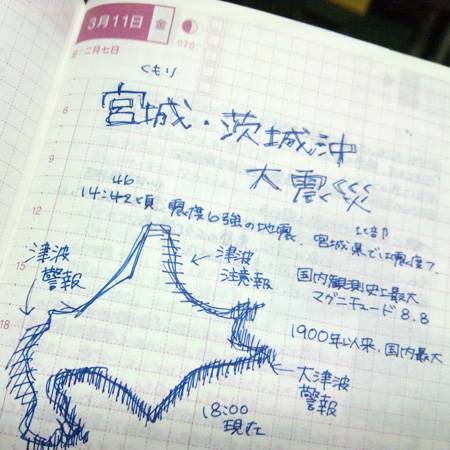 3月11日 金
070
旧:二月七日
くもり
宮城・茨城沖
大震災
46
14:42頃 震度6強の地震、宮城県北部では震度7。
国内観測史上最大
マグニチュード8.8
1900年以来、国内最大
津波
警報
津波
注意報
大津波
警報
18:00
現在
6
9
12
15
18